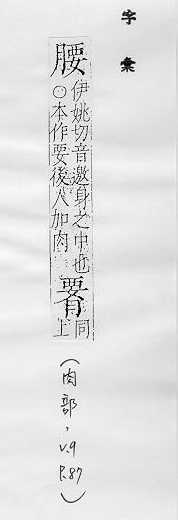 字彙
腰伊姚切音邀身之中也
○本作要後人加肉
𦝫同上
(肉部,V.9 P.87)